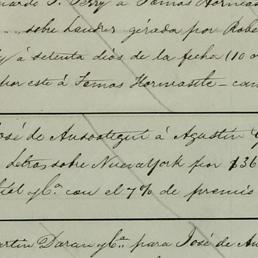 uardo P. Perry á Tomas Hormas
sobre Londres girada por Robe
á setenta dias de la fecha (10 
por este á Tomas Hormaste - can
José de Ansoategui á Agustin
letras sobre Nueva York por $36
tiel y Ca. con el 7% de premio
artin Daran y Ca. para José de An